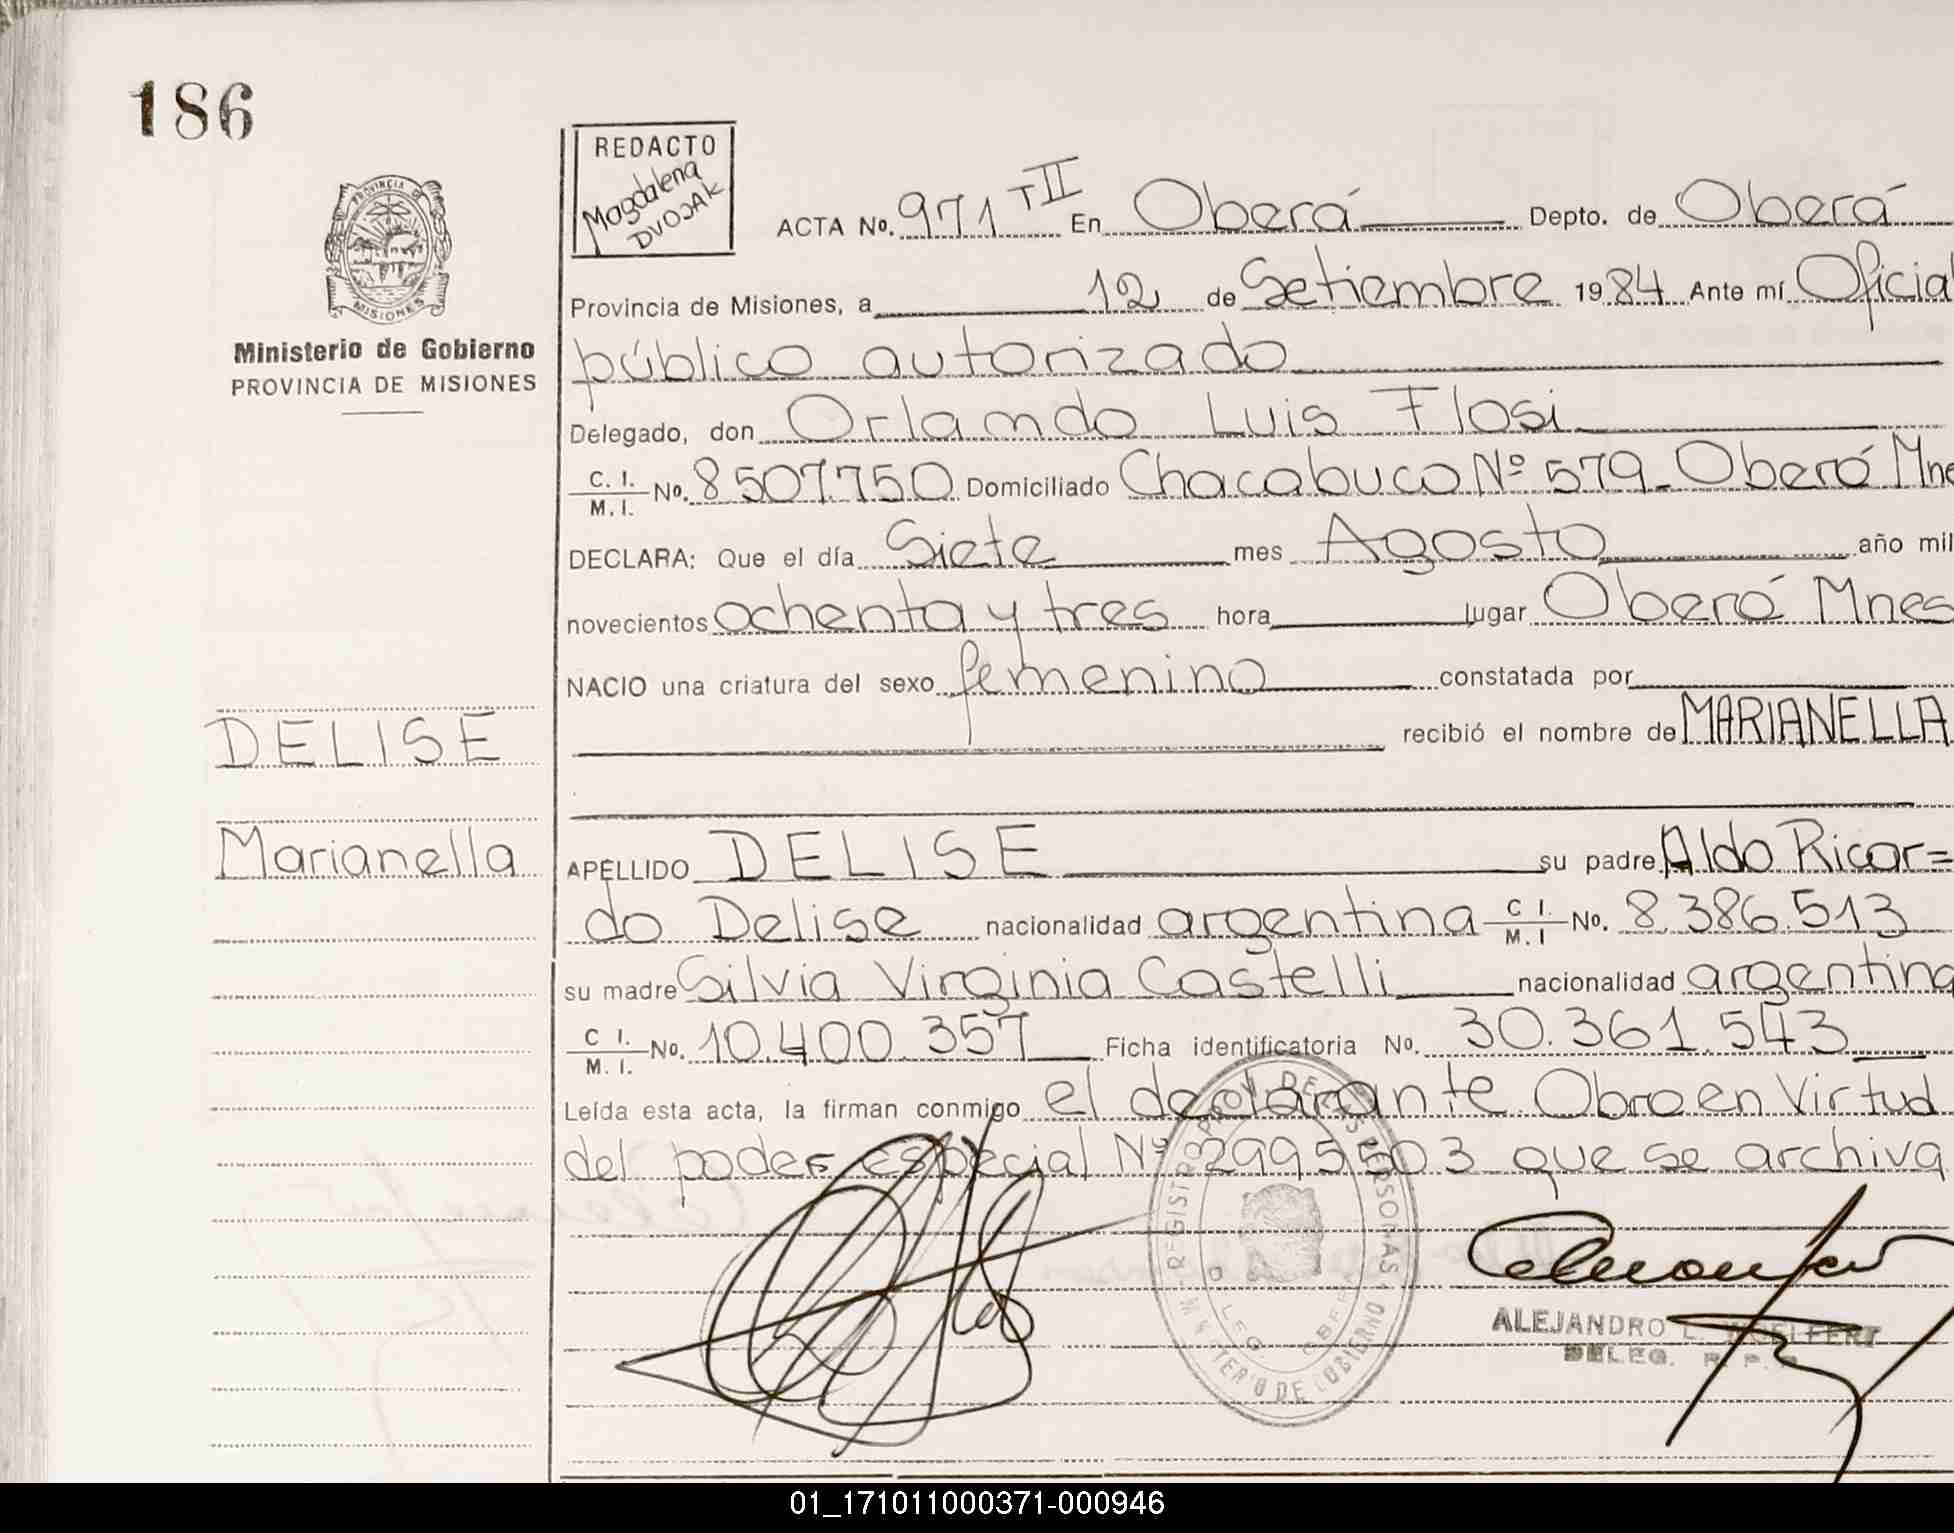 186
REDACTO
Magdalena
DVOJAK
PROVINCIA DE
MISIONES
Ministerio de Gobierno
PROVINCIA DE MISIONES
ACTA No. 971 T II En Oberá Depto. de Oberá
Provincia de Misiones, a 12 de Setiembre 1984 Ante mí Oficial
público autorizado
Delegado, don Orlando Luis Flosi
C. I. / M. I. No. 8507.750 Domiciliado Chacabuco Nº 579 - Oberá Mne
DECLARA: Que el día Siete mes Agosto año mil
novecientos ochenta y tres hora lugar Oberá Mnes
NACIO una criatura del sexo femenino constatada por
recibió el nombre de MARIANELLA
DELISE
Marianella
APELLIDO DELISE su padre Aldo Ricar=
do Delise nacionalidad argentina C I. / M. I No. 8.386.513
su madre Silvia Virginia Castelli nacionalidad argentina
C I. / M. I. No. 10.400.357 Ficha identificatoria No. 30.361.543
Leída esta acta, la firman conmigo el declarante Obra en Virtud
del poder especial Nº 2995503 que se archiva
REGISTRO PROV. DE LAS PERSONAS
MINISTERIO DE GOBIERNO
ALEJANDRO L.
DELEG. R. P. P.
01_171011000371-000946